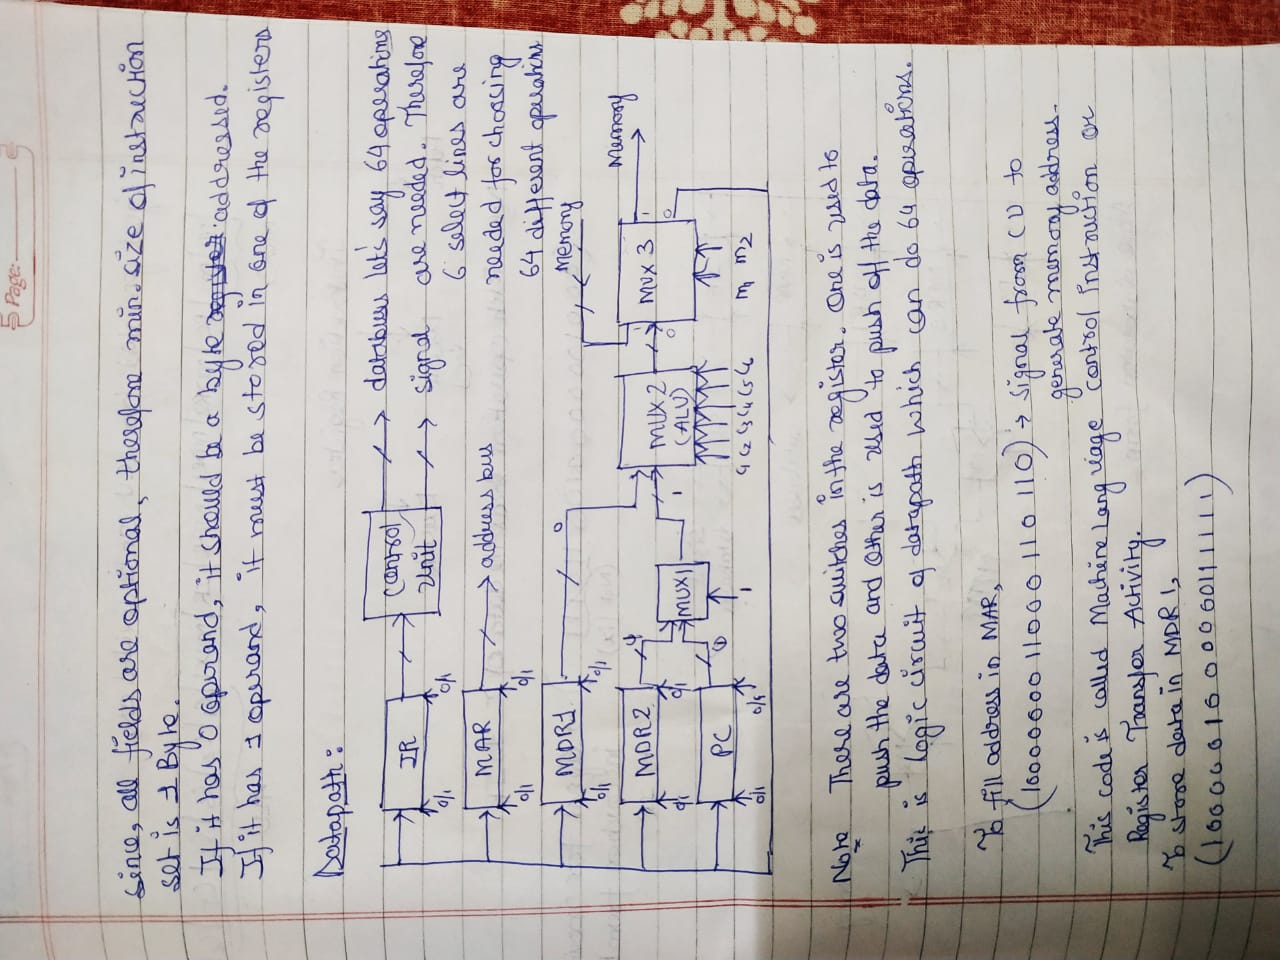 Page:
Since, all fields are optional, therefore min. size of instruction
set is 1 Byte.
If it has 0 operand, it should be a byte addressed.
If it has 1 operand, it must be stored in one of the registers
Datapath:
IR
0/1
0/1
Control
Unit
databus
signal
let's say 64 operations
are needed. Therefore
6 select lines are
needed for choosing
64 different operations
MAR
0/1
0/1
address bus
MDR1
0/1
0/1
0
MDR2
0/1
0/1
PC
0/1
0/1
MUX1
1
1
MUX2
(ALU)
C1 C2 C3 C4 C5 C6
Memory
MUX 3
0
1
0
m1 m2
Memory
Note There are two switches in the register. One is used to
push the data and other is used to push off the data.
This is logic circuit of datapath which can do 64 operations.
To fill address in MAR,
(1000000011000110110) → signal from CU to
generate memory address.
This code is called Machine language Control Instruction or
Register Transfer Activity.
To store data in MDR1,